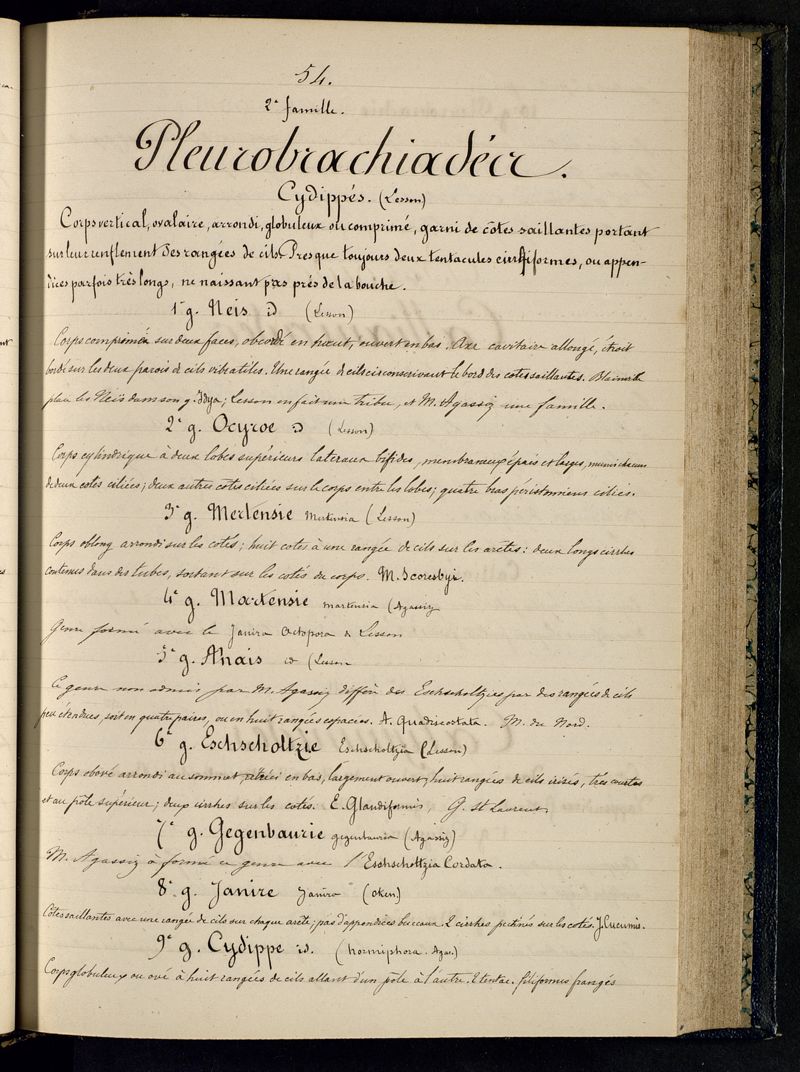 54.
2e famille.
Pleurobrachiadées.
Cydippés. (Lesson)
Corps vertical, ovalaire, arrondi, globuleux ou comprimé, garni de côtes saillantes portant
sur leur renflement des rangées de cils. Presque toujours deux tentacules cirrhiformes, ou appen-
dices parfois très longs, ne naissant pas près de la bouche.
1er g. Neis id (Lesson)
Corps comprimée sur deux faces, obcordé en haut, ouvert en bas. Axe cavitaire allongé, étroit
bordé sur les deux parois de cils vibratiles. Une rangée de cils circonscrivant le bord des cotes saillantes. Blainville
place les Neis dans son g. Idya; Lesson en fait une tribu, et M. Agassiz une famille.
2e g. Ocyroe id (Lesson)
Corps cylindrique à deux lobes supérieurs lateraux bifides, membraneux épais et larges, munis chacun
de deux cotes ciliées; deux autres cotes ciliées sur le corps entre les lobes; quatre bras péristomiens ciliés.
3e g. Mertensie Mertensia (Lesson)
Corps oblong arrondi sur les cotés; huit cotes à une rangée de cils sur les aretes: deux longs cirrhes
contenus dans des tubes, sortant sur les cotés du corps. M. Scoresbyi.
4e g. Martensie martensia (Agassiz
Genre formé avec le Janira Octopora de Lesson
5e g. Anais id (Lesson
Ce genre non admis par M. Agassiz diffère des Eschscholtzies par des rangées de cils
peu étendues, soit en quatre paires, ou en huit rangées espacées. A. Quadricostata. M. du Nord.
6e g. Eschscholtzie Eschscholtzia (Lesson)
Corps obové arrondi au sommet, rétréci en bas, largement ouvert, huit rangées de cils irisés, très courtes
et au pole supérieur; deux cirrhes sur les cotés. E. Glandiformis, G. St Laurent,
7e g. Gegenbaurie gegenbauria (Agassiz)
M. Agassiz à formé ce genre avec l'Eschscholtzia Cordata.
8e g. Janire Janira (Oken)
Côtes saillantes avec une rangée de cils sur chaque arete; pas d'appendices buccaux. 2 cirrhes pectinés sur les cotés. J. Cucumis.
9e g. Cydippe id. (hormiphora. Agas.)
Corps globuleux ou ové à huit rangées de cils allant d'un pole à l'autre. 2 tentac. filiformes frangés